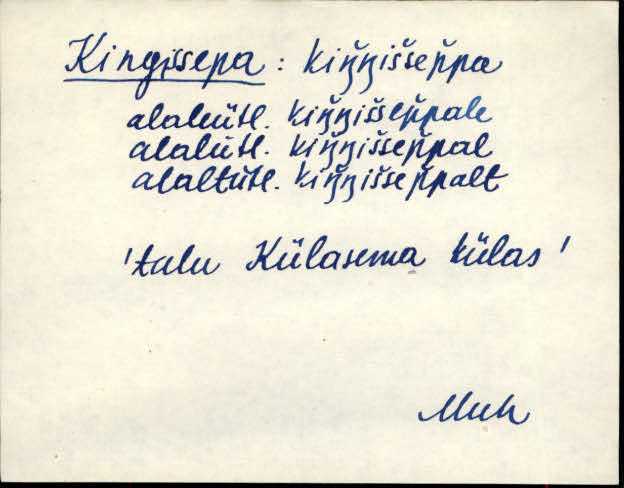 Kingissepa : kiŋ̆ŋišše p̆pa
alaleütl. kiŋ̆ŋiššep̆pale
alalütl. kiŋ̆ŋiššep̆pal
alaltütl. kiŋ̆ŋiššep̆palt
'talu Külasema külas'
Muh